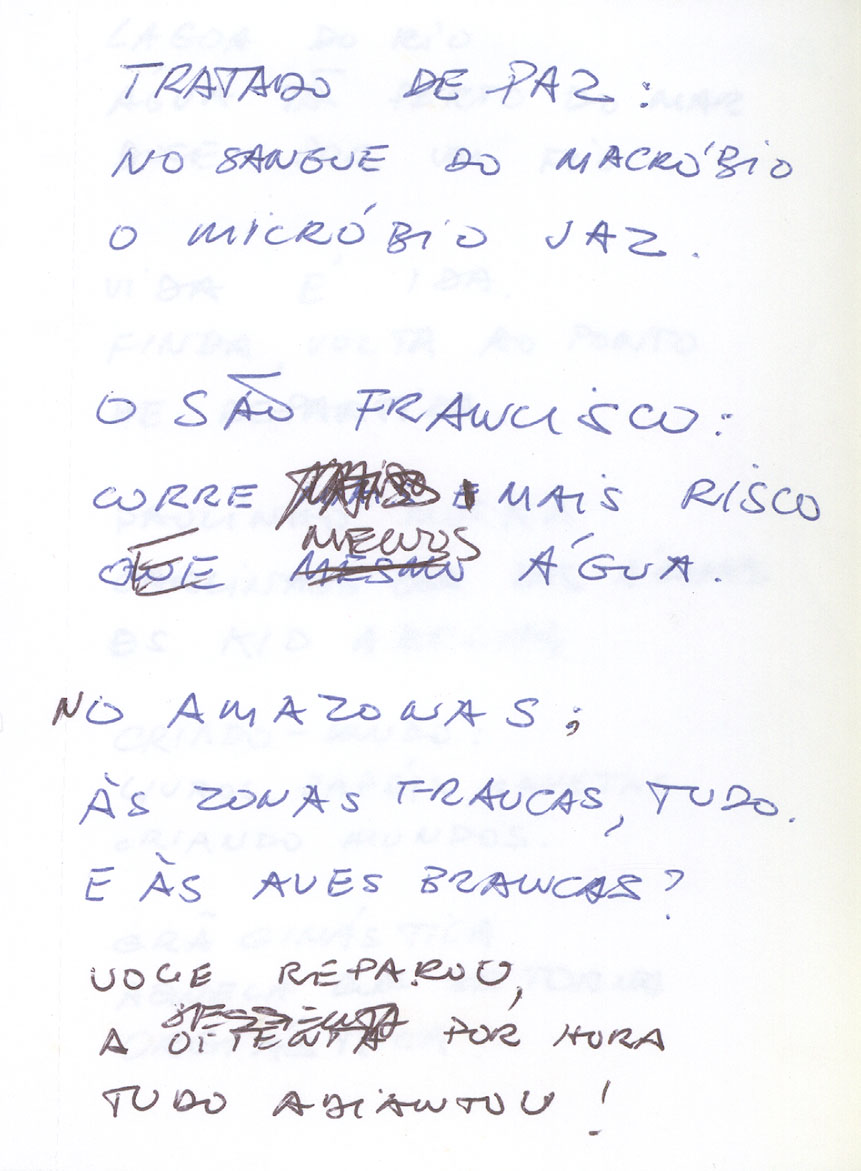 TRATADO DE PAZ:
NO SANGUE DO MACRÓBIO
O MICRÓBIO JAZ.
O SÃO FRANCISCO:
CORRE MAIS RISCO
QUE MENOS ÁGUA.
NO AMAZONAS;
ÀS ZONAS FRANCAS, TUDO.
E ÀS AVES BRANCAS?
VOCE REPAROU,
A OITENTA POR HORA
TUDO ADIANTOU!